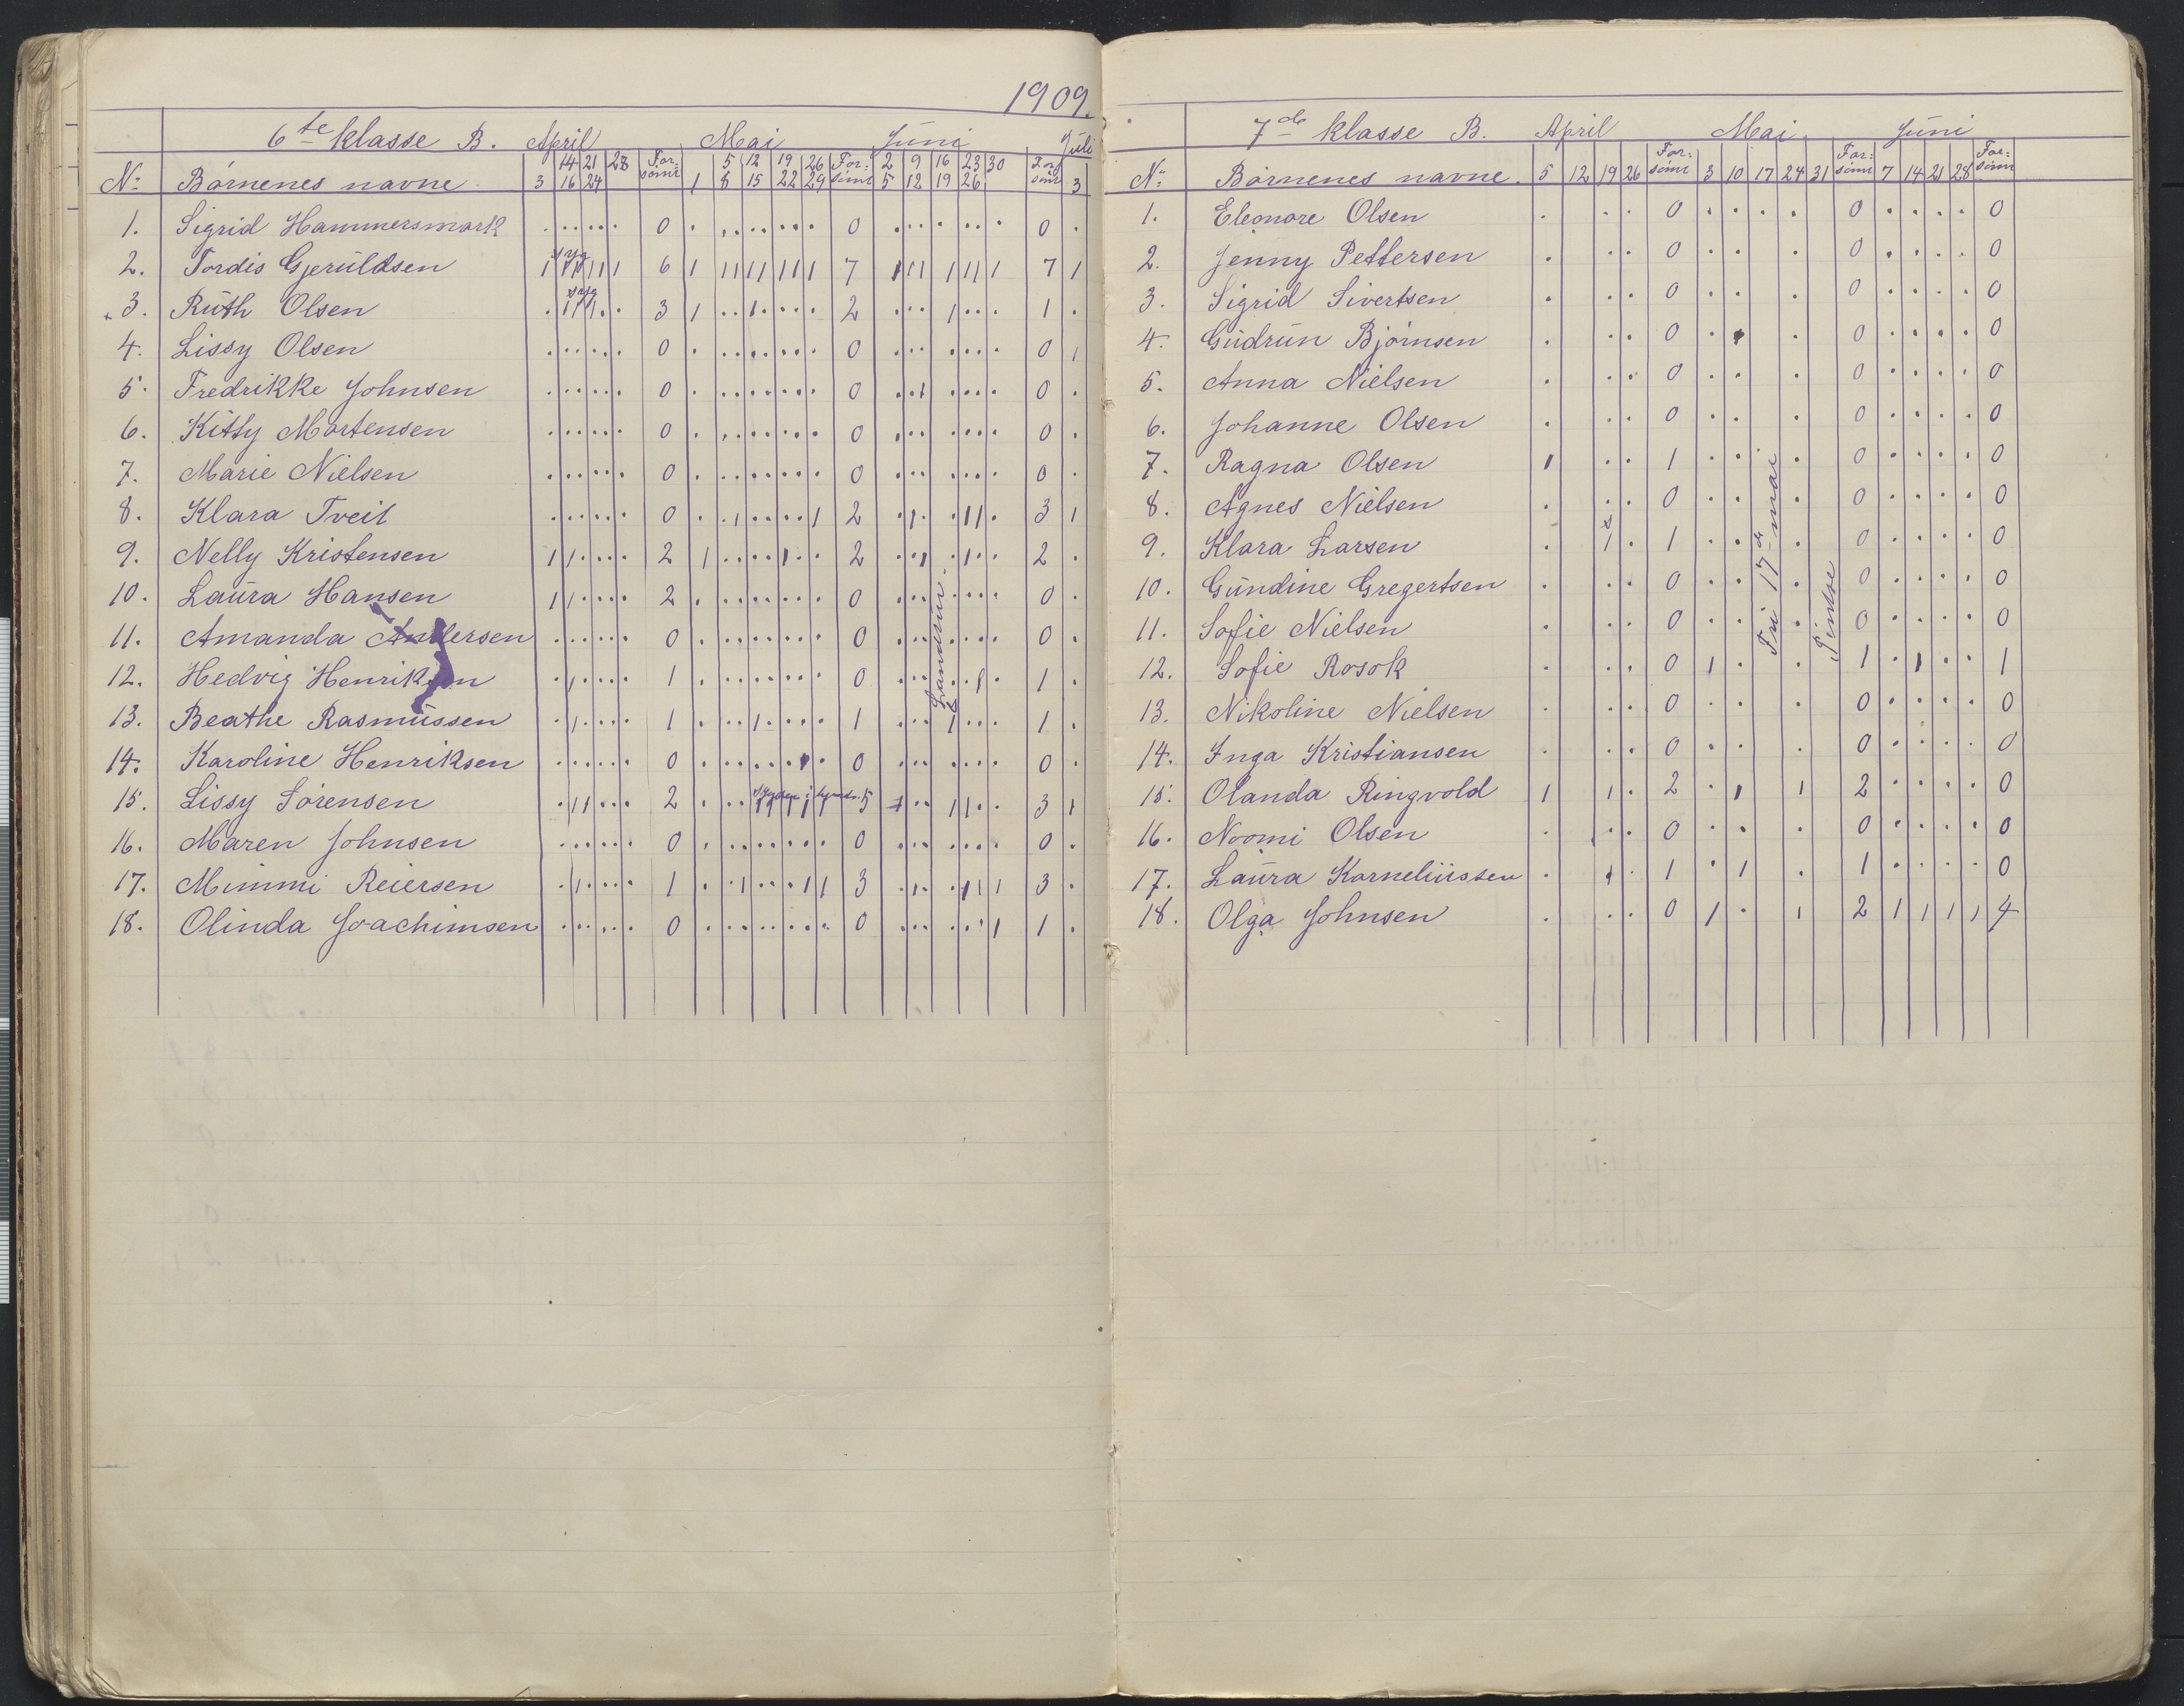 1909.
6te klasse B. April Mai Juni Juli
14 21 28 For: 5 12 19 26 For: 2 9 16 23 30 For
No Børnenes navne. 3 16 24 sømt 1 8 15 22 29 sømt 5 12 19 26 sømt 3
1. Sigrid Hammersmark 0 0 0
syg
2. Tordis Gjeruldsen 6 7 7
syg
3. Ruth Olsen 3 2 1
4. Lissy Olsen 0 0 0
5. Fredrikke Johnsen 0 0 0
6. Kitty Mortensen 0 0 0
7. Marie Nielsen 0 0 0
8. Klara Tveit 0 2 3
9. Nelly Kristensen 2 2 2
10. Laura Hansen 2 0 0
11. Amanda Andersen 0 0 0
12. Hedvig Henriksen 1 0 1
13. Beathe Rasmussen 1 1 1
14. Karoline Henriksen 0 0 0
15. Lissy Sørensen 2 5 3
16. Maren Johnsen 0 0 0
17. Mimmi Reiersen 1 3 3
18. Olinda Joachimsen 0 0 1
7de klasse B. April Mai Juni
For: For: For:
No Børnenes navne. 5 12 19 26 sømt 3 10 17 24 31 sømt 7 14 21 28 sømt
1. Eleonore Olsen 0 0 0
2. Jenny Pettersen 0 0 0
3. Sigrid Sivertsen 0 0 0
4. Gudrun Bjørnsen 0 0 0
5. Anna Nielsen 0 0 0
6. Johanne Olsen 0 0 0
7. Ragna Olsen 1 0 0
8. Agnes Nielsen 0 0 0
9. Klara Larsen 1 0 0
10. Gundine Gregertsen 0 0 0
11. Sofie Nielsen 0 0 0
12. Sofie Rosok 0 1 1
13. Nikoline Nielsen 0 0 0
14. Inga Kristiansen 0 0 0
15. Olanda Ringvold 2 2 0
16. Noomi Olsen 0 0 0
17. Laura Korneliussen 1 1 0
18. Olga Johnsen 0 2 4
Fri 17de mai
Pintse